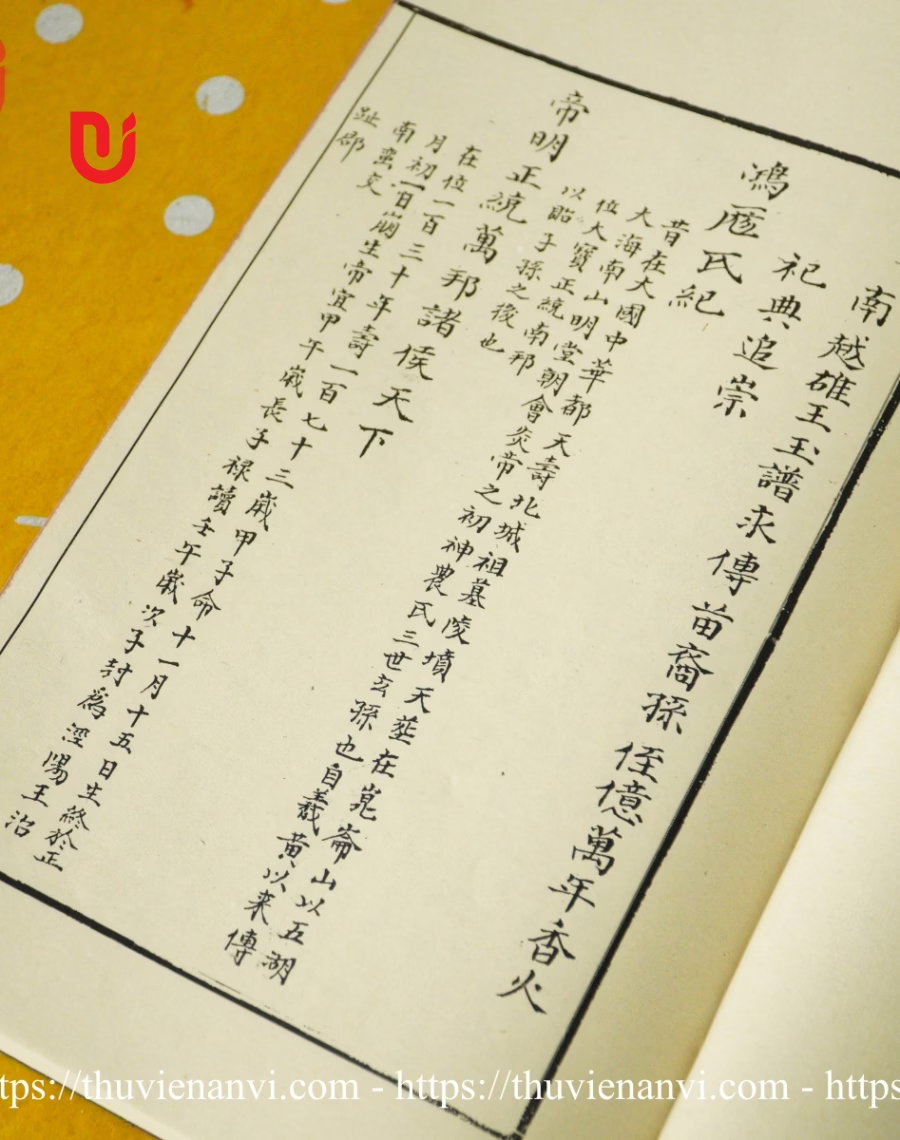 南越雄王玉譜永傳苗裔孫侄億萬年香火
祀典追崇
鴻厖氏紀
昔在大國中華都天壽北城祖墓陵墳天葬在崑崙山以五湖
大海南山明堂朝會炎帝之初神農氏三世玄孫也自羲黃以来傳
位大寶正統南邦
以昭子孫之後也
帝明正統萬邦諸侯天下
在位一百三十年壽一百七十三歲甲子命十一月十五日生終於正
月初一日崩生帝宜甲午歲長子禄讀壬午歲次子封爲涇陽王治
南蛮交
趾郡
https://thuvienanvi.com - https://thuvienanvi.com - https